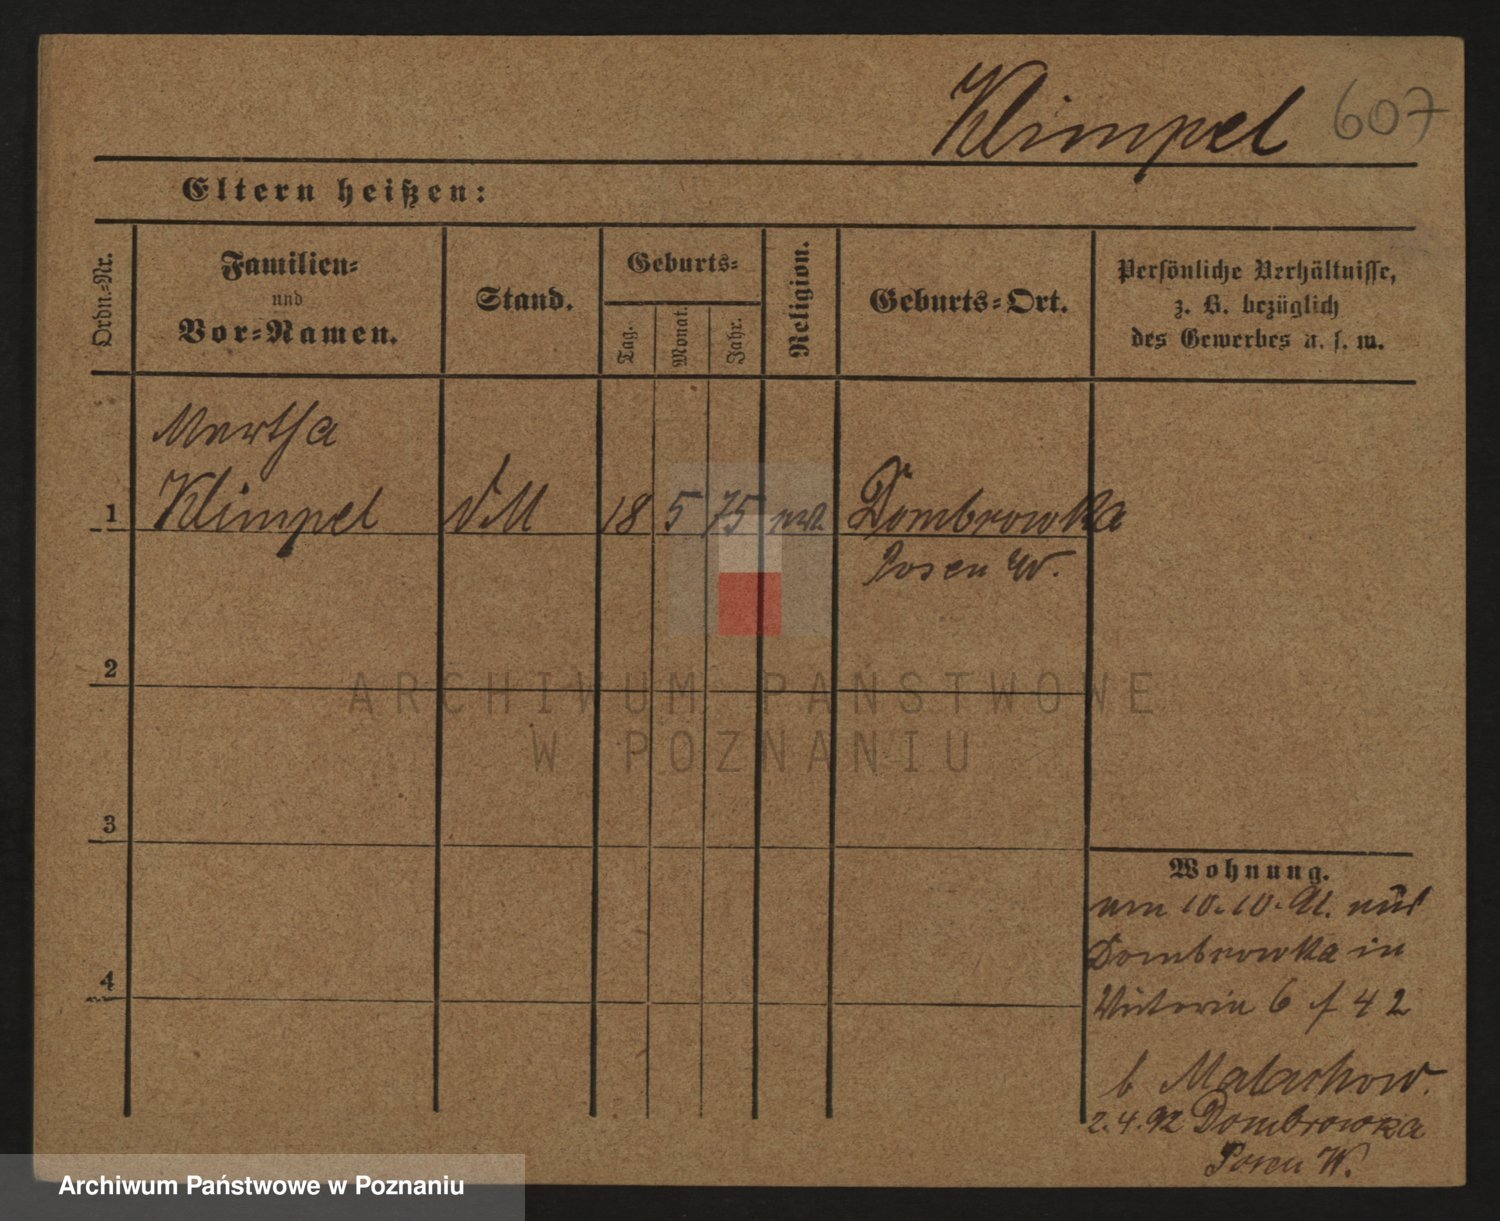 Klimpel 607
Eltern heißen:
Ordn.-Nr.
Familien-
und
Vor-Namen.
Stand.
Geburts-
Tag.
Monat.
Jahr.
Religion.
Geburts-Ort.
Persönliche Verhältnisse,
z. B. bezüglich
des Gewerbes u. s. w.
Martha
1 Klimpel DM 18 5 75 ev. Dombrowka
Posen W.
2
3
4
Wohnung.
am 10.10.91. aus
Dombrowka in
Victoria 6 f 42
b Malachow.
2.4.92 Dombrowka
Posen W.
ARCHIWUM PAŃSTWOWE
W POZNANIU
Archiwum Państwowe w Poznaniu